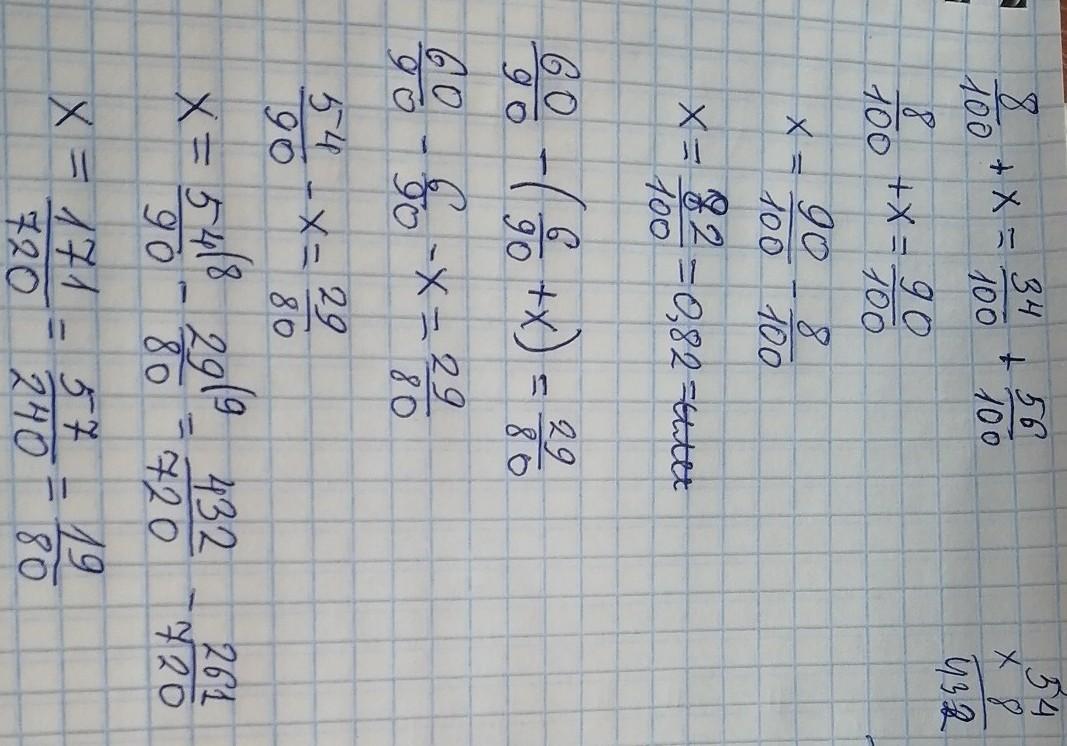 8/100 + x = 34/100 + 56/100
8/100 + x = 90/100
x = 90/100 - 8/100
x = 82/100 = 0,82 =
60/90 - (6/90 + x) = 29/80
60/90 - 6/90 - x = 29/80
54/90 - x = 29/80
x = 54(8/90 - 29(9/80 = 432/720 - 261/720
x = 171/720 = 57/240 = 19/80
54
× 8
432